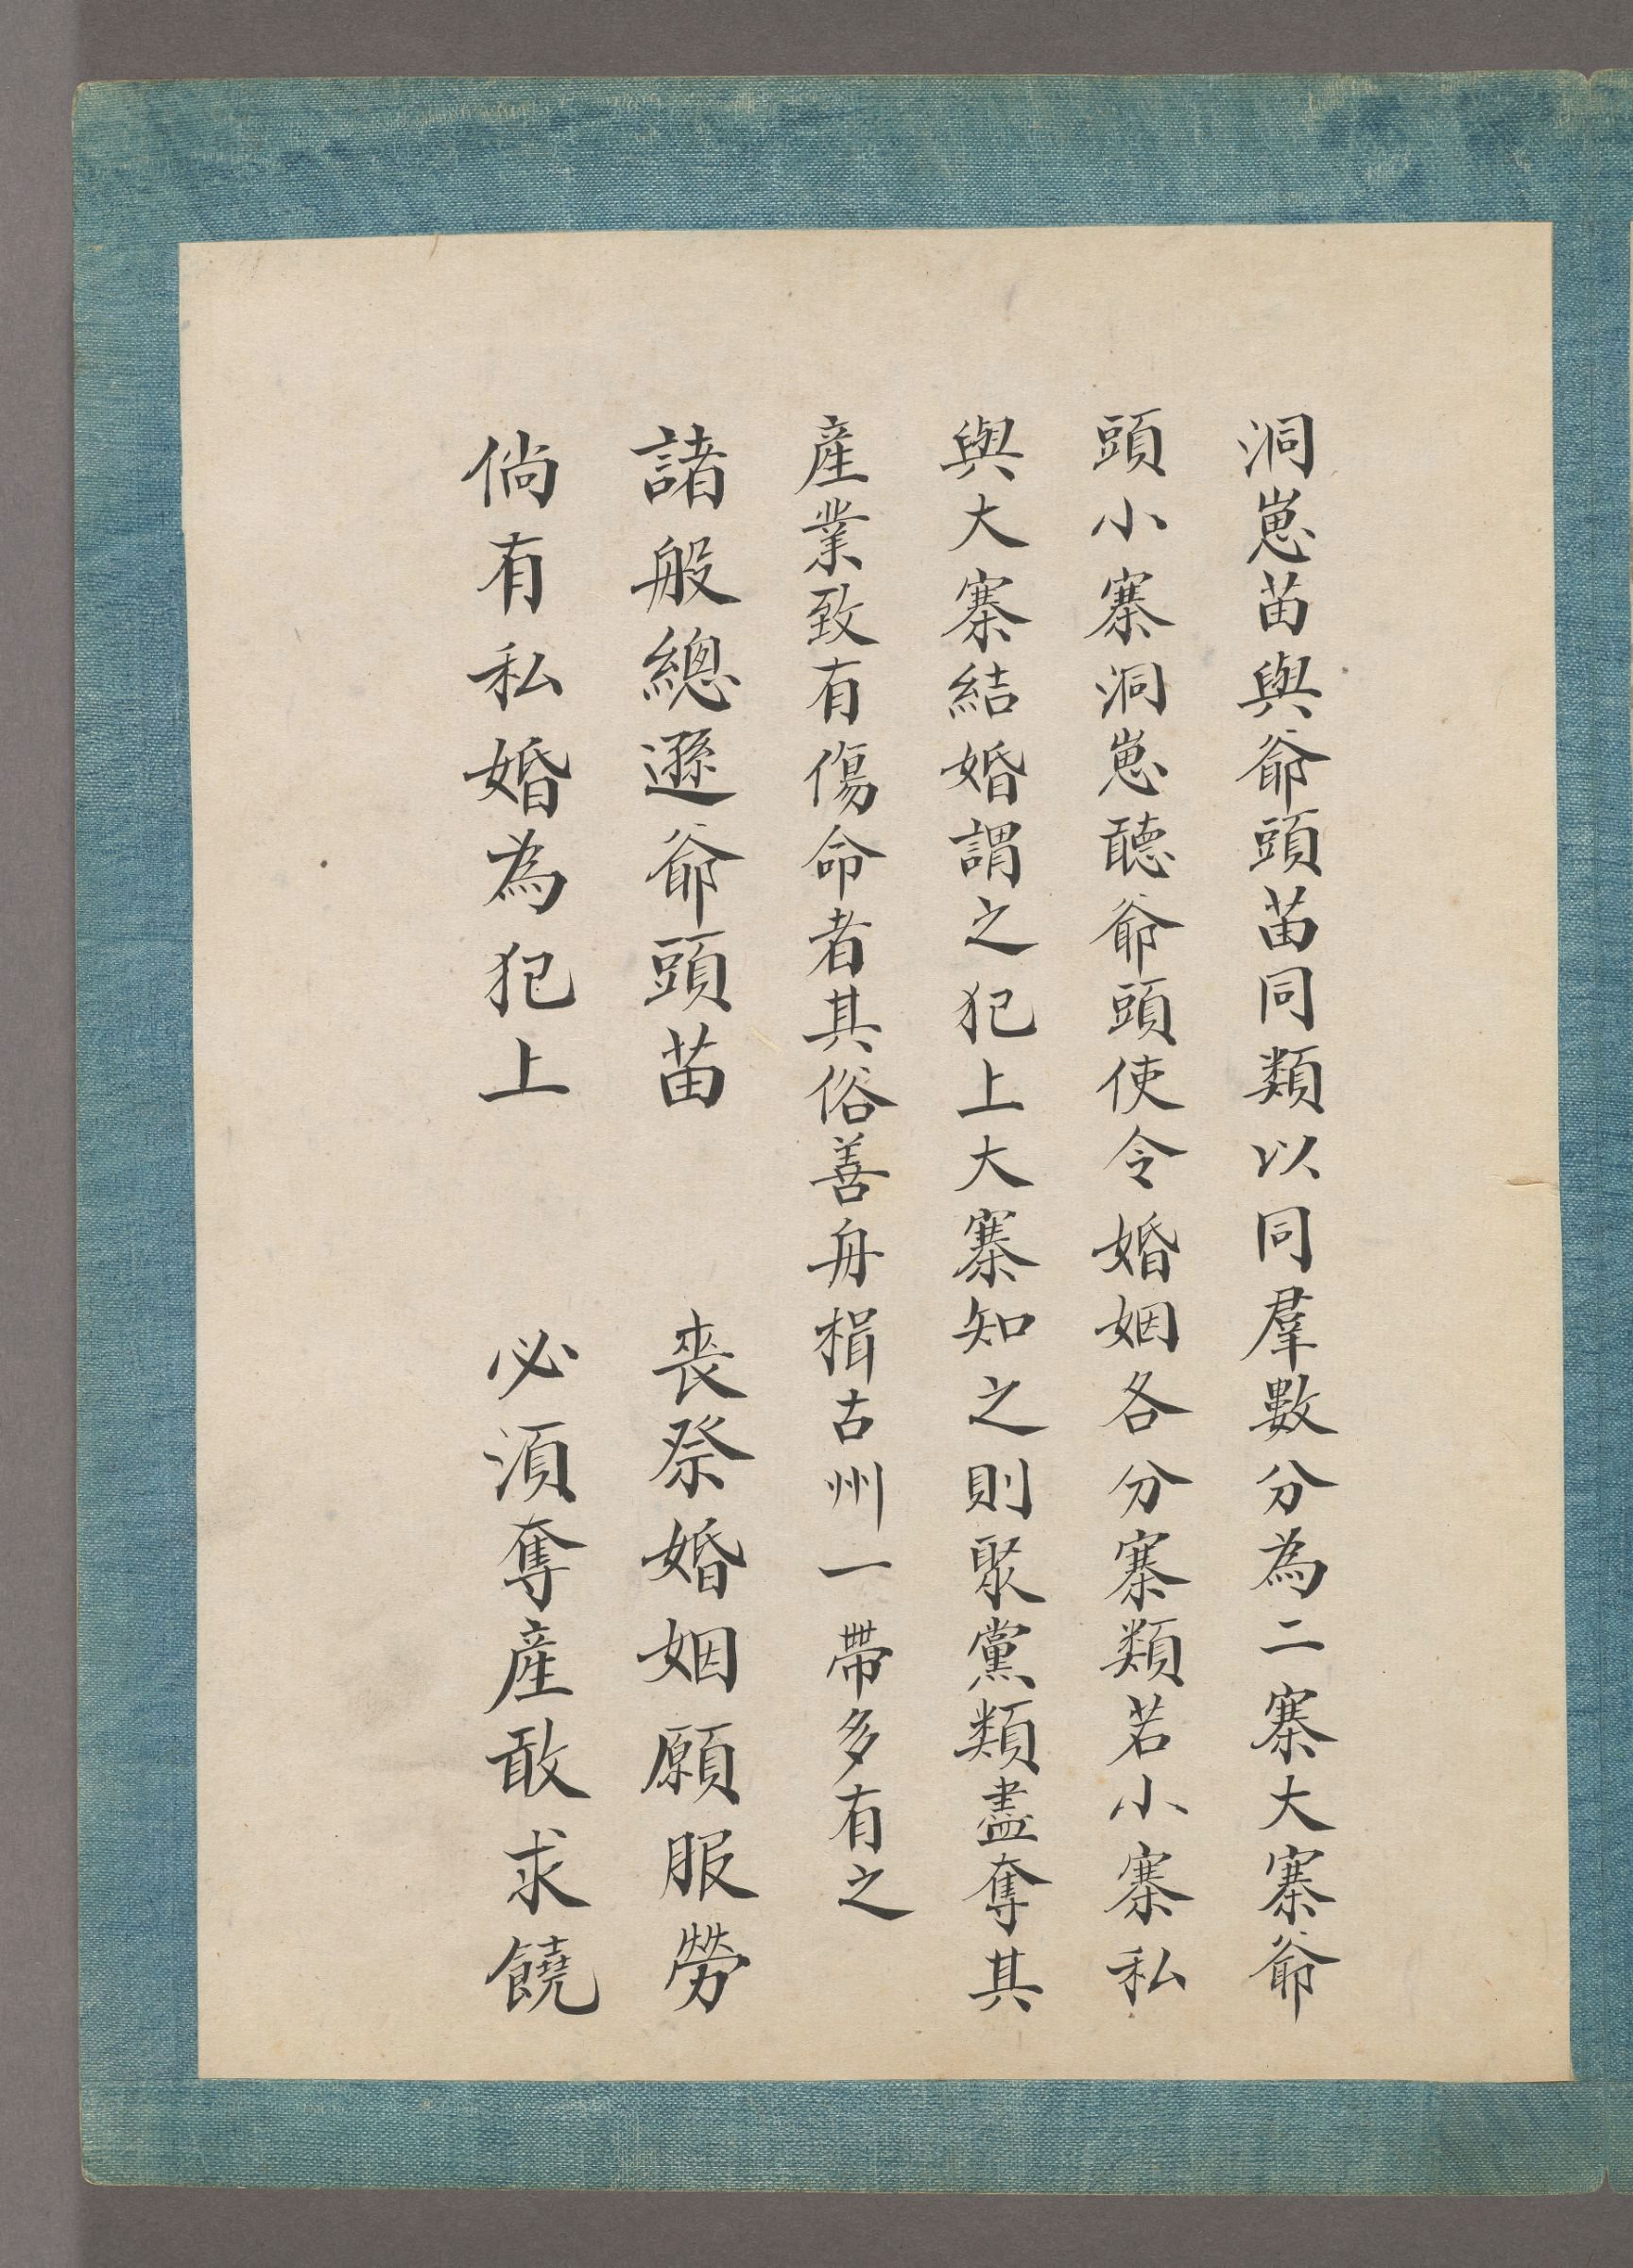 洞崽苗與爺頭苗同類以同羣數分為二寨大寨爺
頭小寨洞崽聽爺頭使令婚姻各分寨類若小寨私
與大寨結婚謂之犯上大寨知之則聚黨類盡奪其
產業致有傷命者其俗善舟楫古州一帶多有之
諸般總遜爺頭苗 喪祭婚姻願服勞
倘有私婚為犯上 必須奪產敢求饒